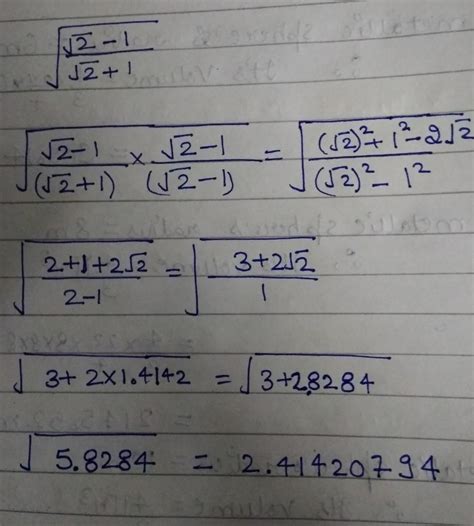 √((√2 - 1)/(√2 + 1))
√((√2 - 1)/((√2 + 1)) × (√2 - 1)/((√2 - 1))) = √(((√2)² + 1² - 2√2)/((√2)² - 1²))
√((2+1+2√2)/(2-1)) = √((3+2√2)/1)
√(3+ 2×1.4142) = √(3+2.8284)
√(5.8284) = 2.41420794